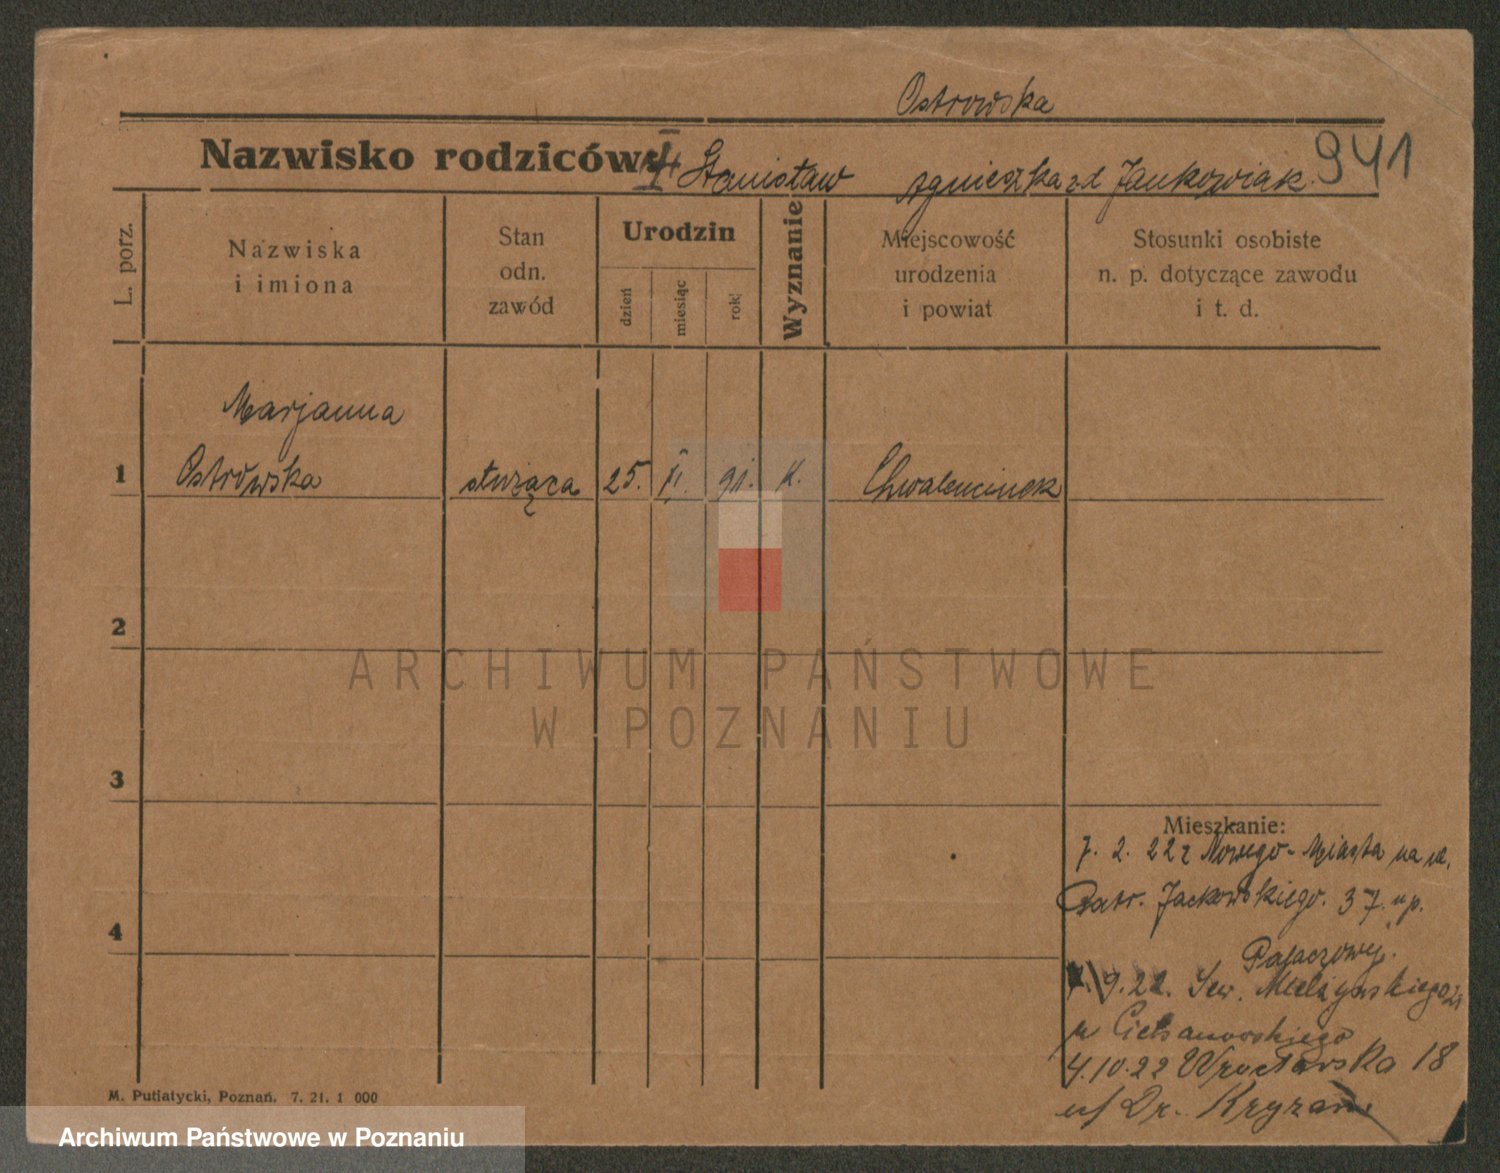 Ostrowska
Nazwisko rodziców: Stanisław Agnieszka zd Jankowiak. 941
L. porz.
Nazwiska
i imiona
Stan
odn.
zawód
Urodzin
dzień
miesiąc
rok
Wyznanie
Miejscowość
urodzenia
i powiat
Stosunki osobiste
n. p. dotyczące zawodu
i t. d.
Marjanna
1 Ostrowska służąca 25. 91. K. Chwalencinek
2
ARCHIWUM PAŃSTWOWE
W POZNANIU
3
Mieszkanie:
7. 2. 22 z Nowego-Miasta na ul.
Patr. Jackowskiego. 37. u p.
4
Pałaczowej.
9.22. Sew. Mielżyńskiego
u
4.10.22 Wrocławska 18
u/ Dr.
M. Putiatycki, Poznań. 7. 21. 1 000
Archiwum Państwowe w Poznaniu